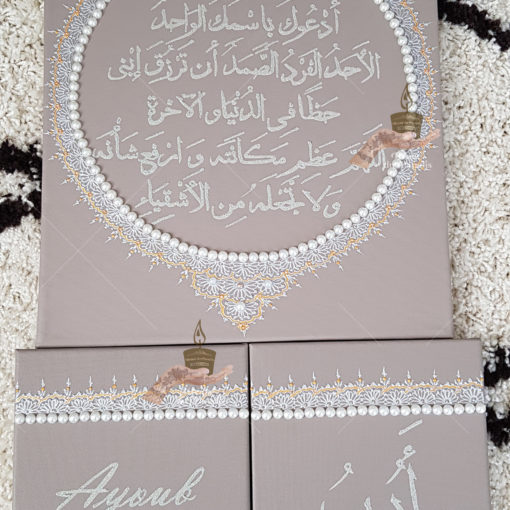 أدعوك باسمك الواحد
الأحد الفرد الصمد أن ترزق إبني
حظا في الدنيا و الآخرة
اللهم عظم مكانته و ارفع شأنه
ولا تجعله من الأشقياء
Ayoub